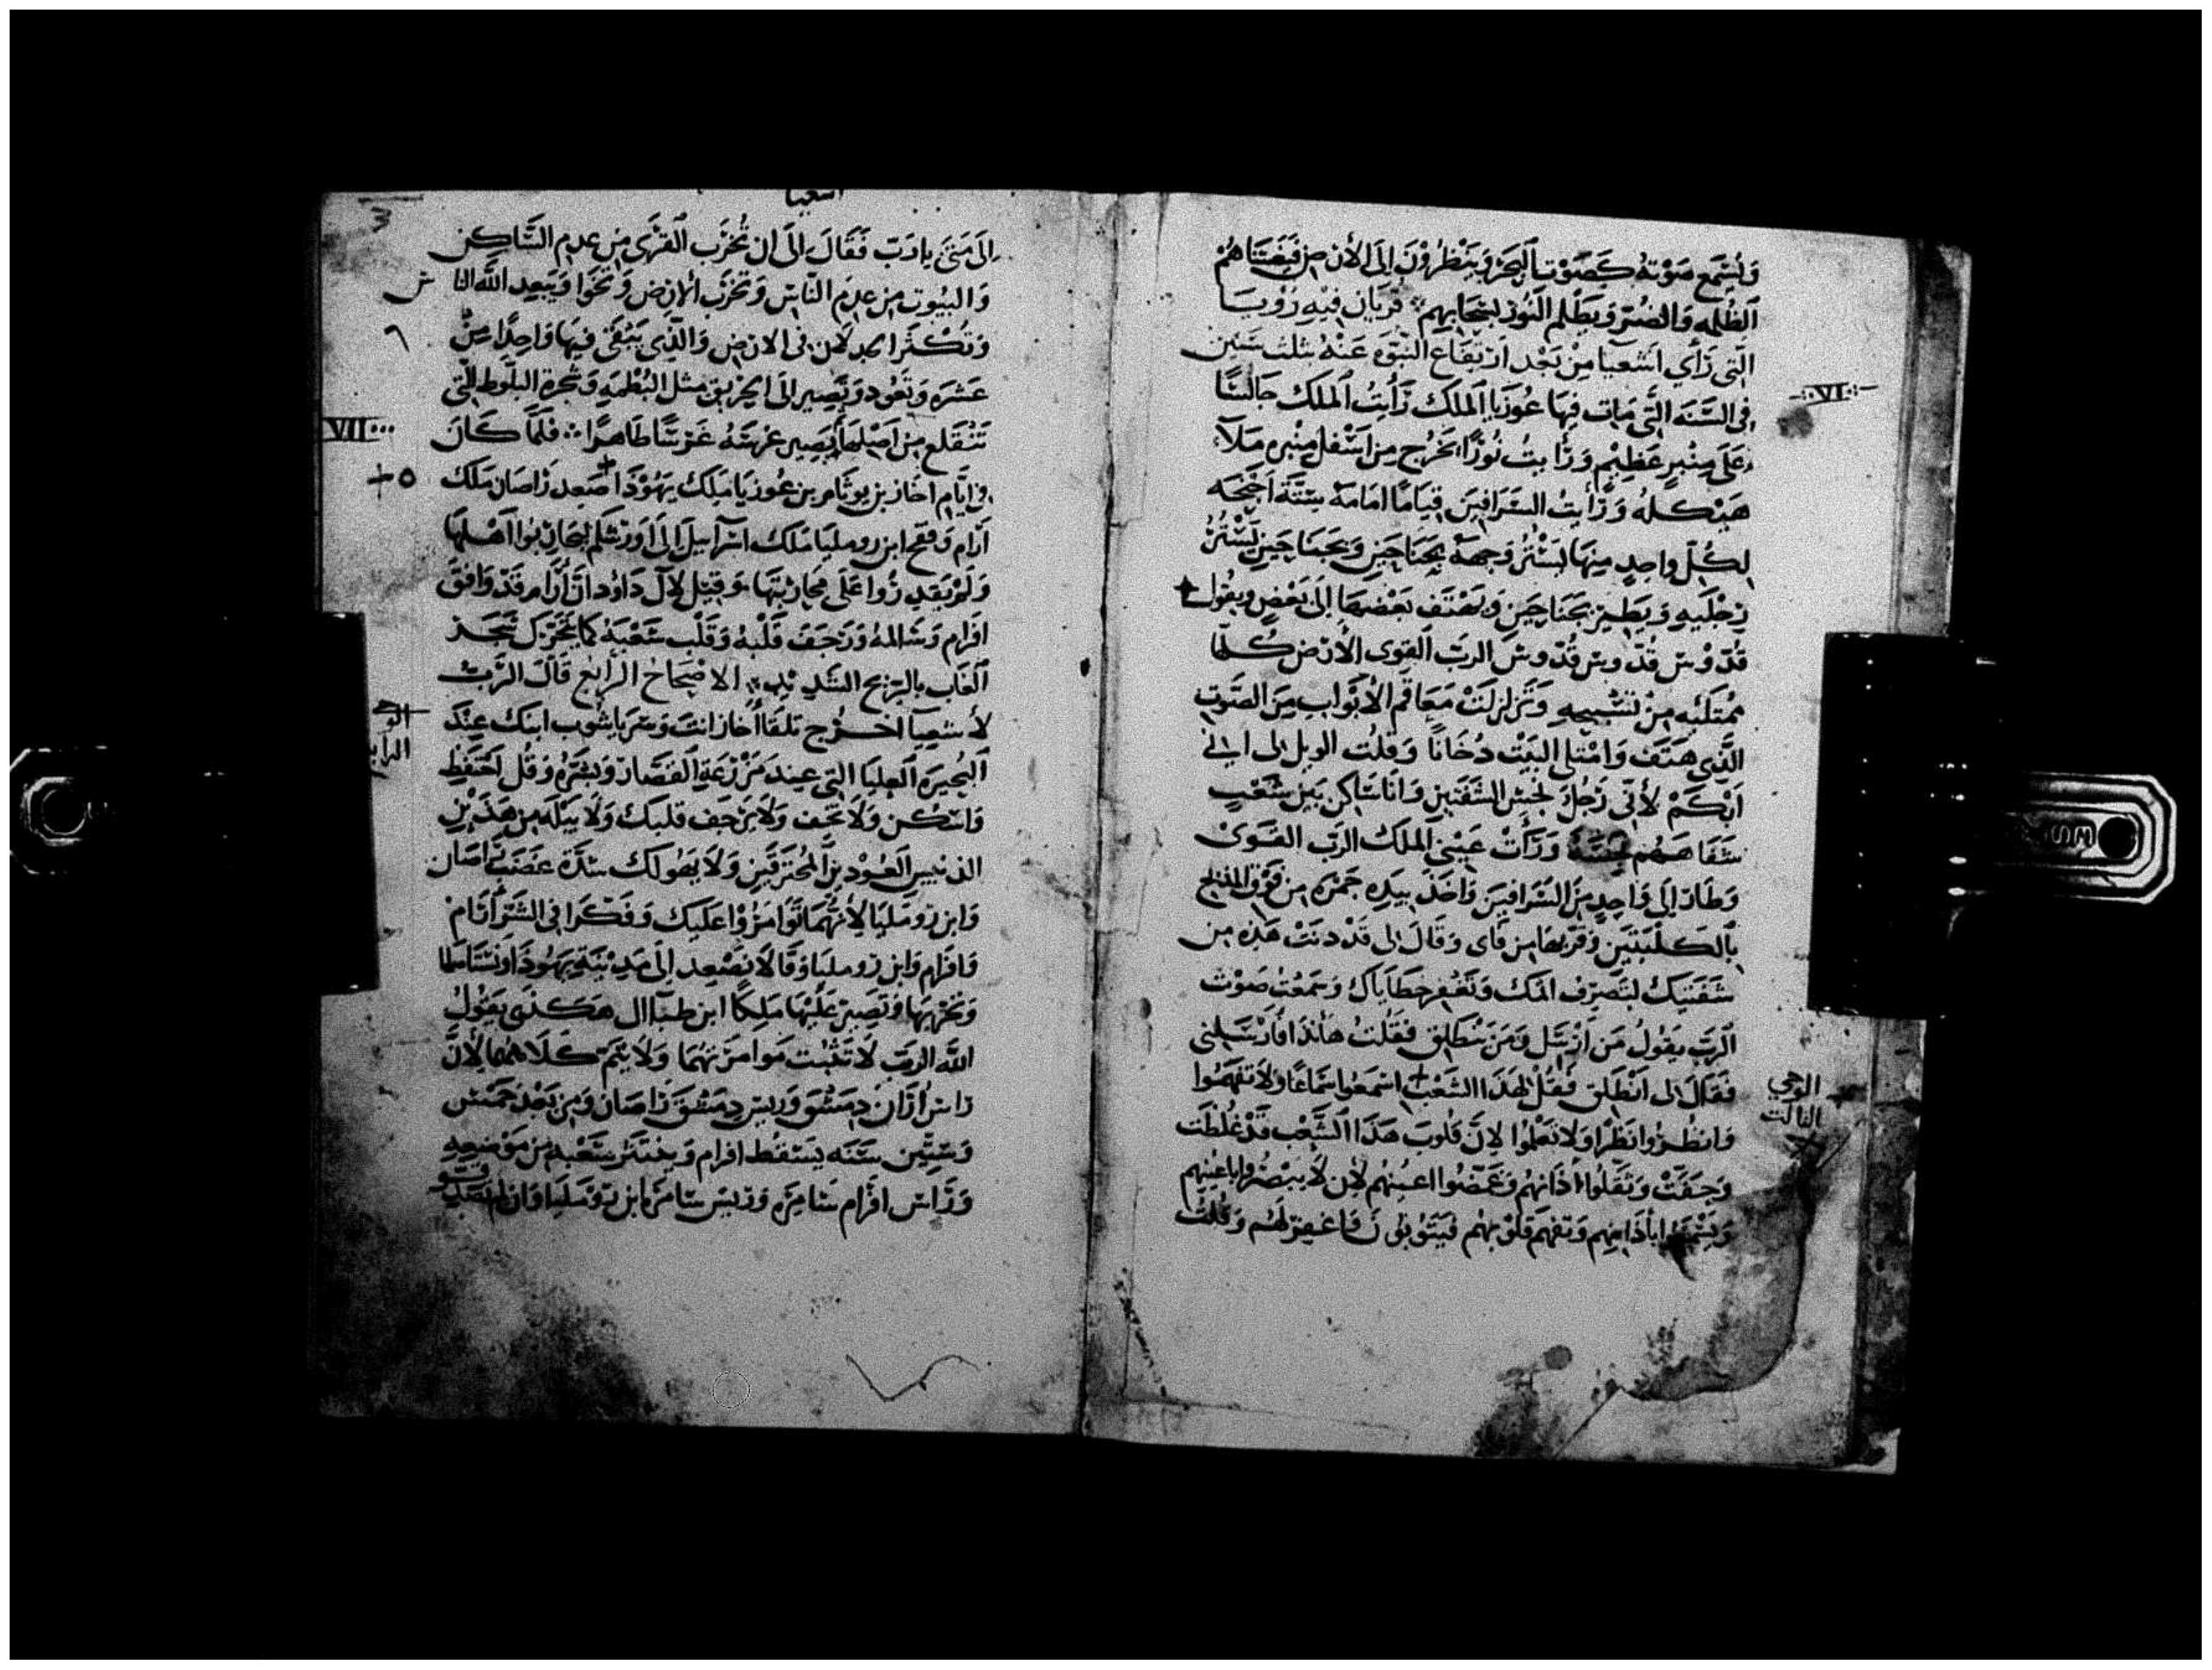 وَيُسْمَع صَوْتهُ كَصَوْت البحَر وَيَنْظرُوْنَ اِلىَ الأرض فيغشاهُمْ
الظُلمه وَالضُر وَيظلم النُوْر بسحَابِهم قريان فِيْهِ رُوْيَا
التي رَأي اشعيَا مِنْ بَعْد ارتفاع النبُوَه عَنْهُ ثلث سَنين
VI
في السَّنَه التي مَات فيها عُوزيا المَلك رَأيتُ المَلك جَالسًا
عَلى مِنْبرٍ عَظِيْم وَرَأيتُ نُورًا يَخرُج مِن اسْفل مِنْبره مَلآ
هَيْكله وَرَأيتُ السَرَافين قيَامًا امَامهُ ستّة اجْنحَه
لكُلّ واحِدٍ مِنهَا يَسْتُرُ وَجههُ بجَنَاحَين وَبجنَاحَين يَسْتُرُ
رجْليهِ وَيَطِير بجنَاحَين وَيهْتف بَعْضهَا إلىَ بَعْضٍ ويقُول
قُدّوْس قُدّوس قُدّوس الربّ القوى الأرْض كُلهَا
مُمْتَليه مِنْ تسْبيحهِ وَتَزلزلتْ مَعَاقم الأبْوابِ مِنَ الصَوت
الّذي هتف وَامْتلى البَيْت دُخَانًا وَقلت الويل لى اني
ابْكَمْ لأنّي رَجُل نجس الشفتين وَانا سَاكن بين شعْبٍ
شفاههُم نجسَه وَرَأتْ عَيْنَي المَلك الربّ القَوىّ
وَطَار إلى وَاحِدٍ مِنَ السَرَافينَ وَاخذ بيَدِه جَمْرَه مِن فَوْق المذبح
بالكلبَتين وَقرّبهَا مِن فاى وَقالَ لى قدْ دنتْ هَذِه مِن
شفتيك لتصرف اثمك وَتغفر خطاياك وَسَمعْت صَوْت
الرَبّ يقولُ مَن ارْسل وَمَن ينطلِق فقلت هَاندا فأرْسَلِني
فقَالَ لى انْطلِق فقل لهَذا الشعْب اسْمعُوا سَمَاعًا وَلا تفهموا
الوحي
الثالت
وَانظرُوا نظرًا وَلا تعْلمُوا لانّ قلوبَ هَذا الشّعْب قدْ غلظتْ
وَجفتْ وَثقّلوا أذانهُم وَغمّضوا اعينهُم لأن لا يبْصرُوا باعينهِم
وَيسْمعُوا باذانهِم وَتفهم قلوبهُم فيَتوبُون فاغفِر لهُم وَقلت
اشعيا
3
إلىَ مَتىَ يارَبّ فَقَالَ إلىَ ان تُخرَب القُرَى مِن عدم السَّاكِن
وَالبيُوت مِن عدم النّاس وَتخرَب الارض وَتخوَا وَيَبعِد الله النا
س
وَتكثرا لان في الارض وَالّذِى يَبْقى فِيهَا وَاحِدًا مِنْ
٦
عشرَه وَتعُود وَتصِير إلى الحريق مثل البُطْمَه وَشجرة البلّوط التي
VII
تَنقلع مِن اصْلهَا يَصِير غرسَهُ غرْسًا طَاهرًا فلمّا كَانَ
في ايَّام احَاز بن يوثام بن عُوزيَا مَلِك يَهُوذَا صَعِد رَاصَان مَلك
٥
ارَام وَفقح ابن رومليَا مَلك اسْرآييل إلىَ اورشلم ليحَاربُوا اهْلهَا
وَلمْ يَقدِرُوا عَلى مُحَاربتهَا وَقِيل لآل دَاوُد انّ أرَام قدْ وَافق
افرام وَسَالمهُ وَرَجَف قلبهُ وَقلب شَعْبهُ كما يَتحَرّك شجر
الغَاب بالريح الشَدِيْدِ الاصْحَاحْ الرابع قالَ الرّبّ
لأشعِيَا اخرُج تلقا أحَاز انتَ وسَريَاشوب ابنك عِنْدَ
الوحي
الرابع
البُحيرَه العليَا التي عند مَزْرعَة القصَار وَبشرهُ وَقل احتفظ
وَاسْكن وَلا تخف وَلا يَرجف قلبك وَلا يبَله مِن هَذَيْنِ
الذنبين العُوْدين المُحترقين وَلا يَهُولك شدَّة غضَب رَاصَان
وَابن رومليَا لأنّهُمَا توَامرُوْا عَليك وَفكّرَا في الشرّ أرَام
وَافرام وَابن رومليَا وَقالا نصعد إلى مَدِينة يَهُودَا وَنسْتاسلها
وَنخربهَا وَنصِير عَليْهَا مَلِكًا ابن طبَاال هَكذى يقولُ
الله الرَب لا تثبت مَوامرتهُمَا وَلا يتمّ كلاهُمَا لأنّ
رَاسْ أرَان دِمشق وَريس دِمشق رَاصَان وَمِن بَعْد خمسْ
وَستّين سَنَه يسْقط افرام وَ شعْبه مِن مَوْضعهِ
وَرَاس افرام سَامِرَه وَريس سامرَه ابن رومليَا وَان لم تصَدّ
قو